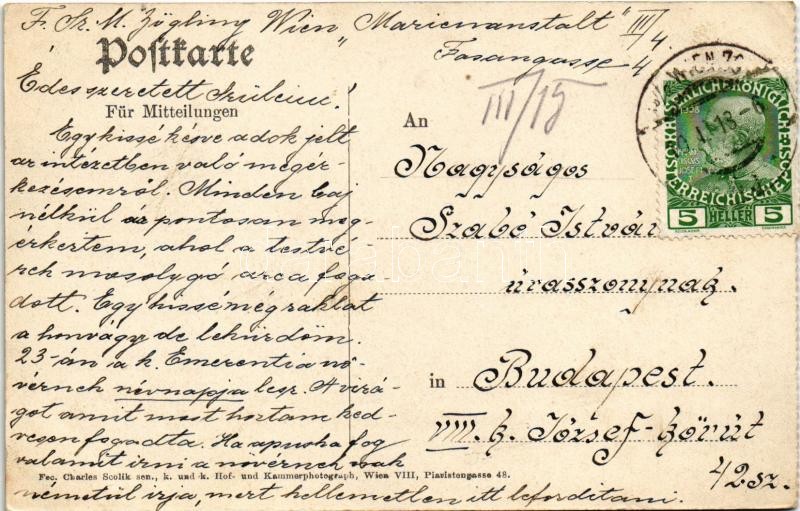 F. Sr. M. Zögling Wien „Marienanstalt" III/4.
Fasangasse 4
Postkarte
Édes szeretett Szüleim!
Für Mitteilungen
Egy kissé késve adok jelt
az intézetben való megér-
kezésemről. Minden baj
nélkül és pontosan meg-
érkertem, ahol a testvé-
rek mosolygó arca foga
dott. Egy kissé még
a honvágy de leküzdöm.
23-án a k. Emerentia nő-
vérnek névnapja lesz. A virá-
got amit most hoztam ked-
vesen fogadta. Ha apuska fog
valamit írni a nővérnek csak
németül írja, mert kellemetlen itt lefordítani.
Fec. Charles Scolik sen., k. und k. Hof- und Kammerphotograph, Wien VIII, Piaristengasse 48.
III/15
An
Nagyságos
Szabó István
úrasszonynak.
in Budapest.
VIII. k. József-körút
42 sz.
WIEN
KAISERLICHE KÖNIGLICHE
ÖSTERREICHISCHE
5 HELLER 5